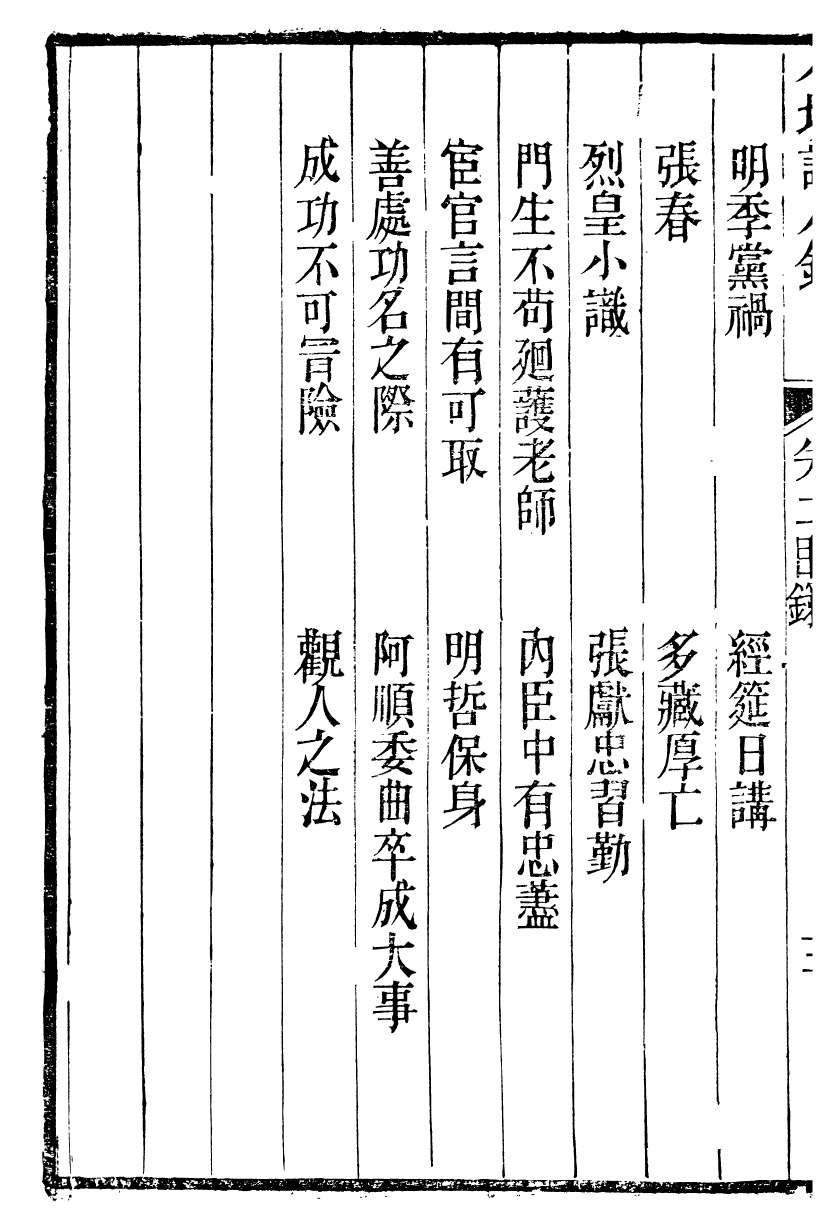 卷二目錄
明季黨禍　經筵日講
張春　多藏厚亡
烈皇小識　張獻忠習勤
門生不苟廻護老師　內臣中有忠藎
宦官言間有可取　明哲保身
善處功名之際　阿順委曲卒成大事
成功不可冒險　觀人之法